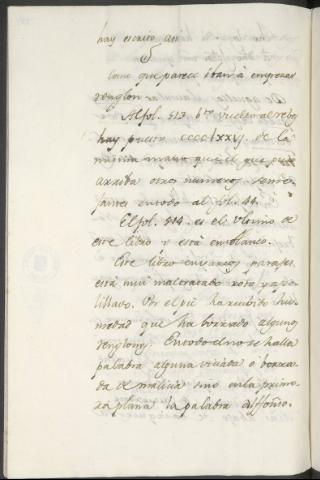 hay escrito, an
como que parece iban à empezar
renglon.
Al fol. 513. bto. vuelto al rebes
hay puesto ccccLxxij. de la
misma mano que el que
arriba otros numeros seme-
jantes en todo al fol. 44.
El fol. 514. es el ultimo de
este libro y está en blanco.
Este libro en varios parajes
está mui maltratado, roto, y apo-
lillado. Por el pie ha recibido hu-
medad que ha borrado algunos
renglones. En todo el no se halla
palabra alguna viciada ò borra-
da de malicia sino en la prime-
ra plana la palabra Alfonso.